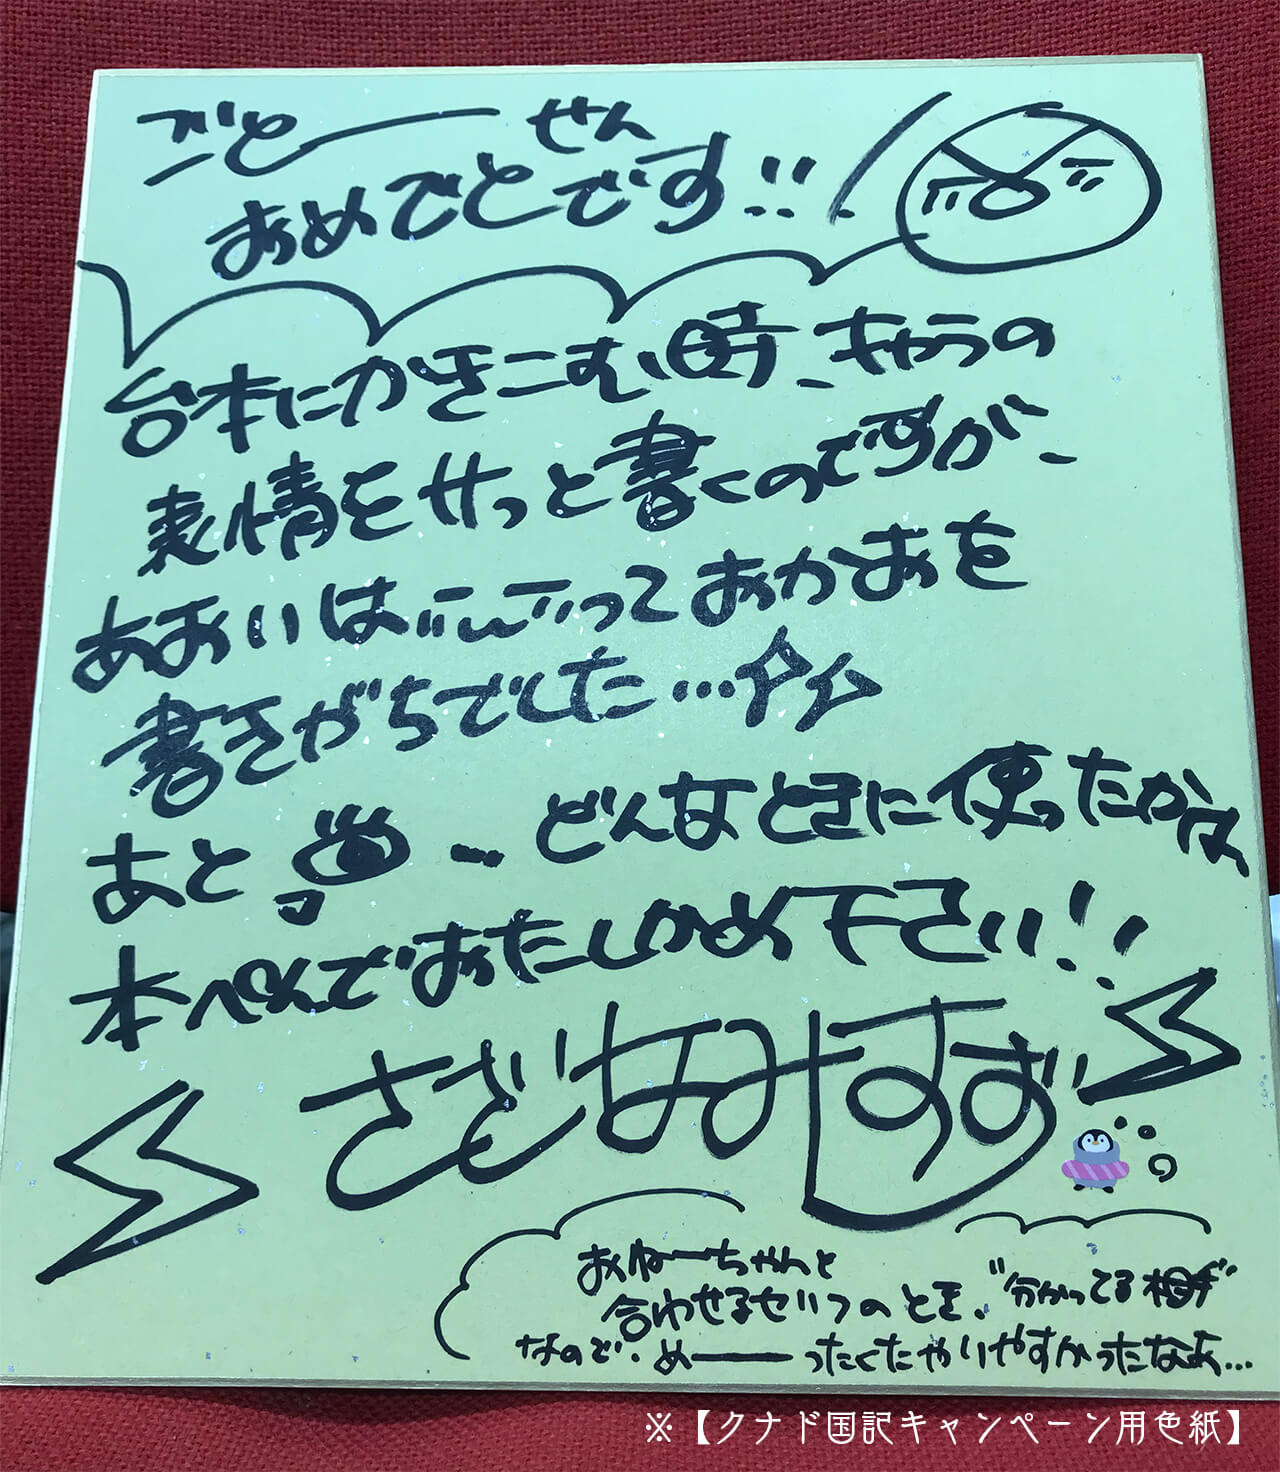 ごとーせん
おめでとです!!
台本にかきこむ時、きゃらの
表情をサっと書くのですが、
あおいは って おかおを
書きがちでした…
あと … どんなときに使ったかは、
本ぺんでおたしかめ下さい!!
さざなみすず
おねーちゃんと
合わせるせりふのとき、"分かってる相手"
なので、めーーったくたやりやすかったなぁ…
※【クナド国記キャンペーン用色紙】